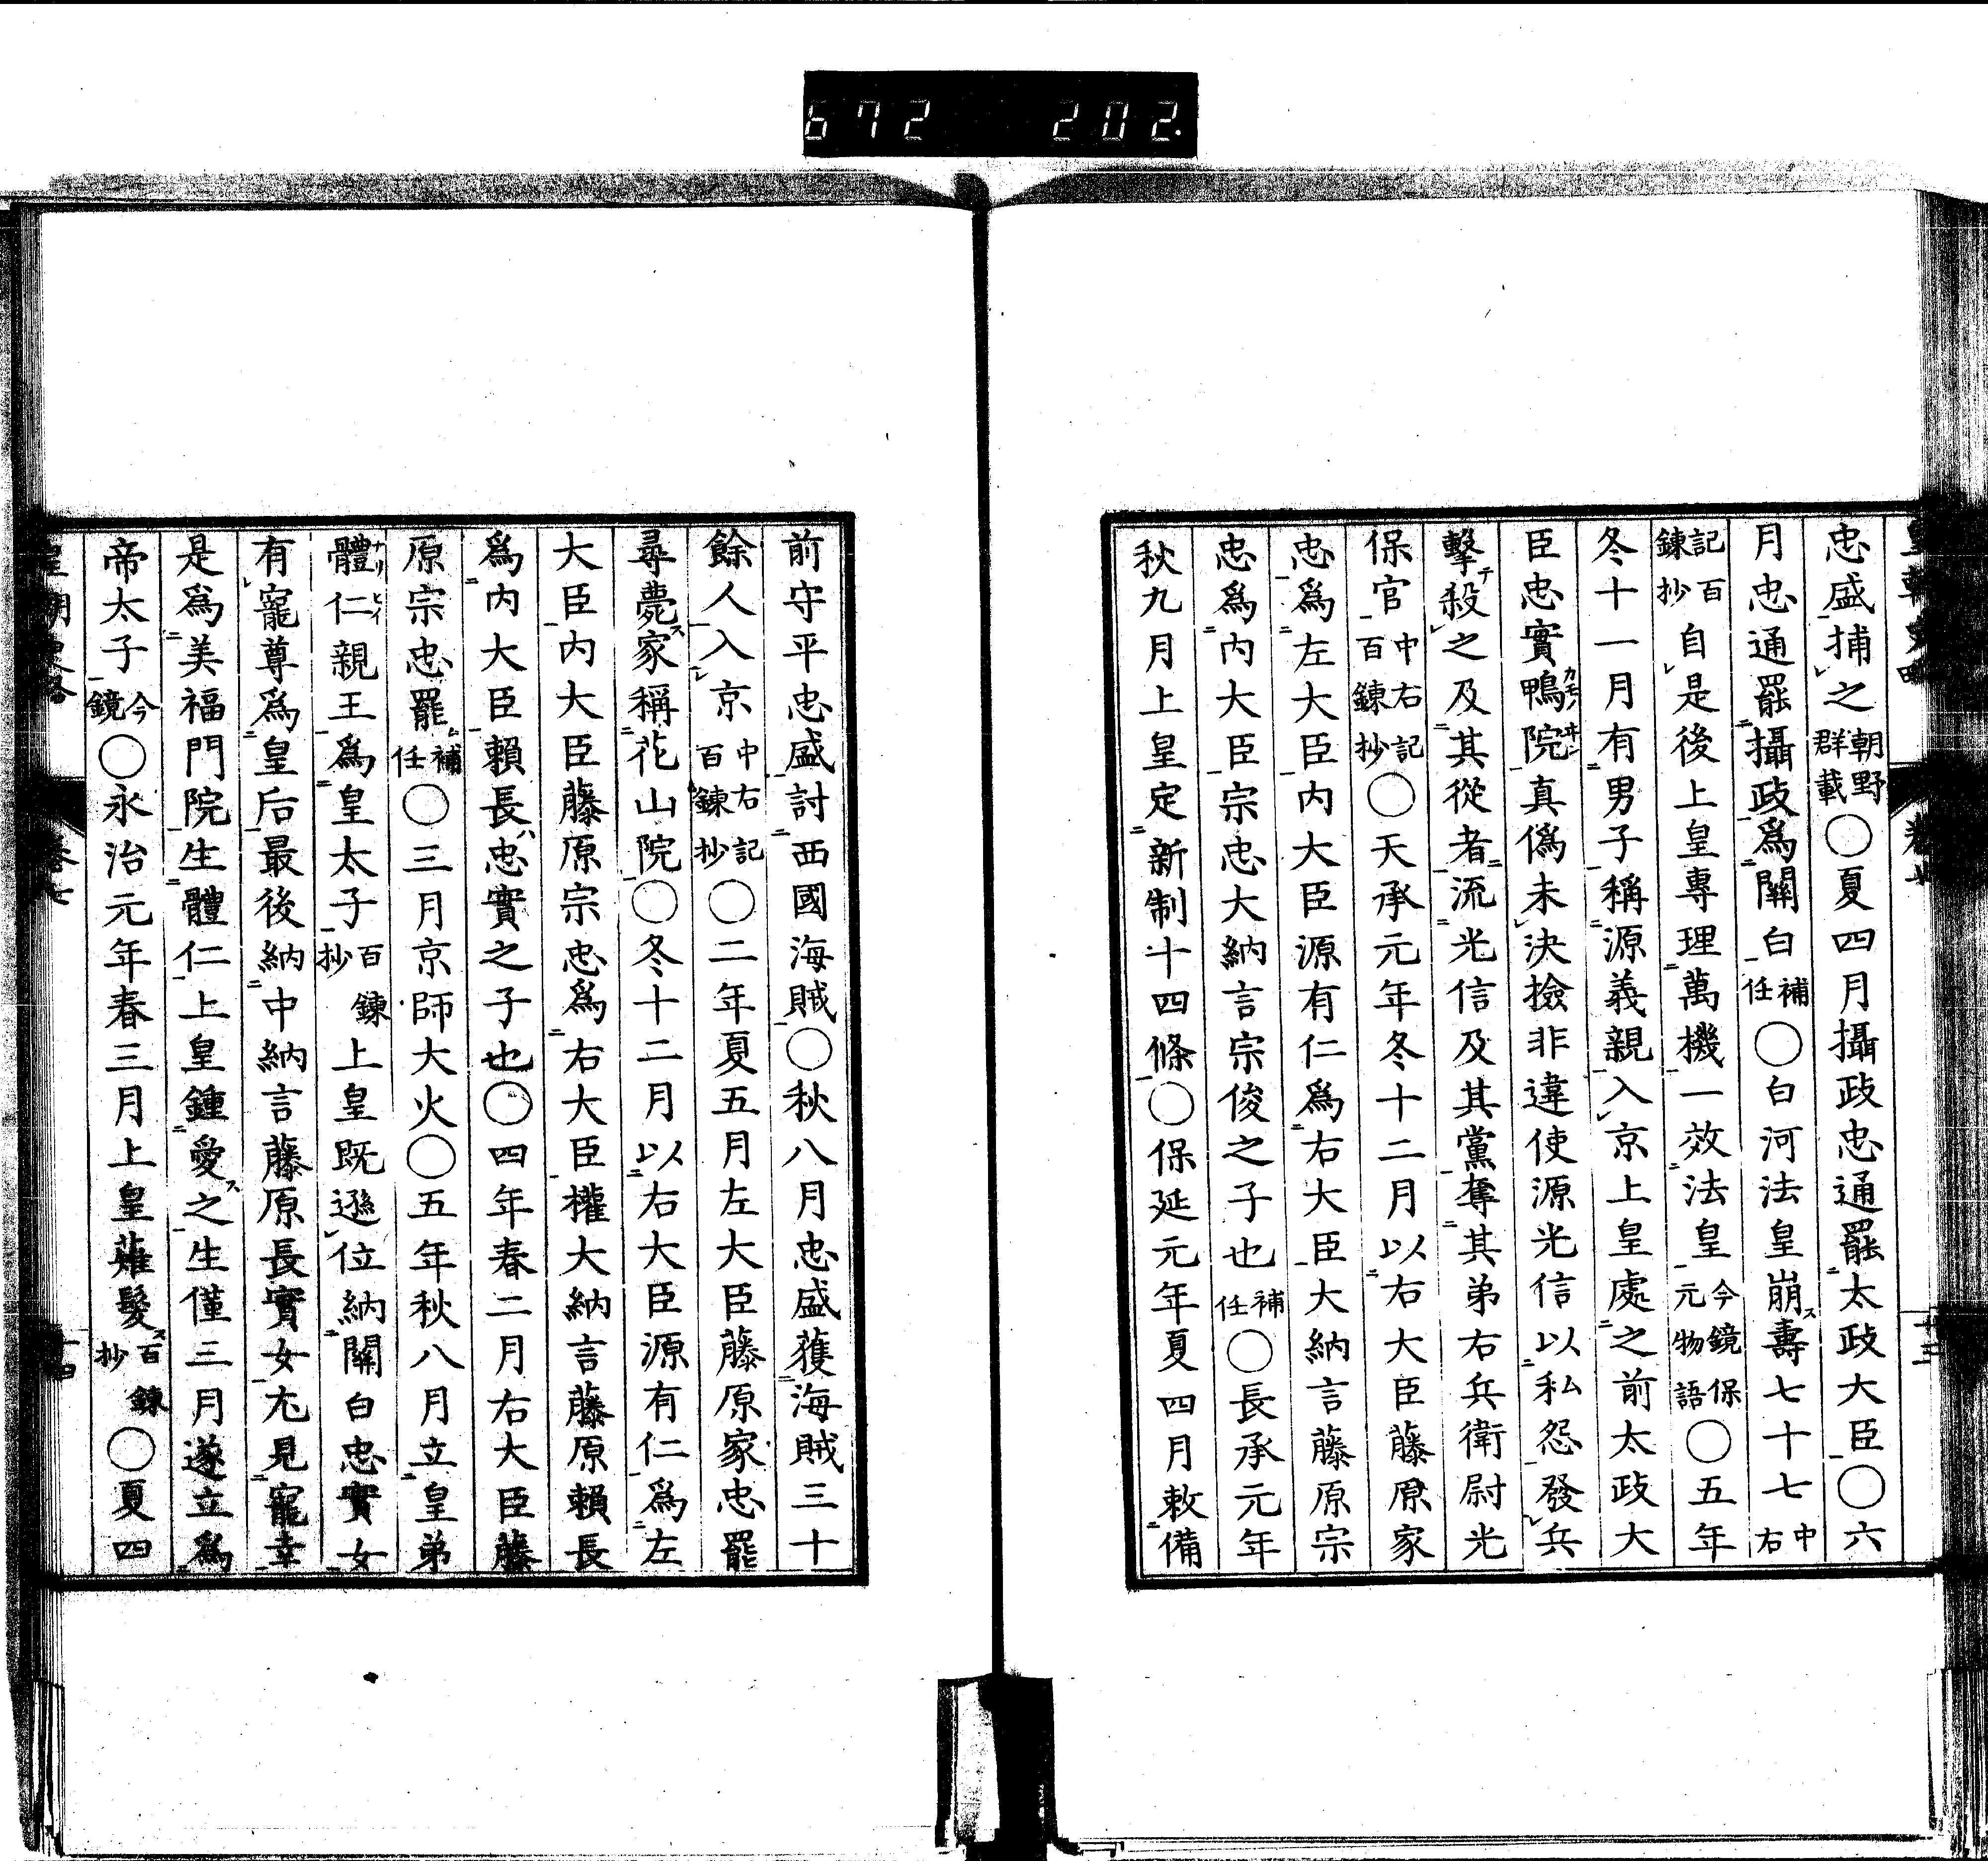 672 202.
忠盛捕之朝野群載○夏四月攝政忠通罷太政大臣○六
月忠通罷攝政爲關白補任○白河法皇崩ス壽七十七中右
記百鍊抄自是後上皇專理萬機一效法皇今鏡保元物語○五年
冬十一月有男子稱源義親入京上皇處之前太政大
臣忠實鴨院カモノヰン真僞未決撿非違使源光信以私怨發兵
擊テ殺之及其從者流光信及其黨奪其弟右兵衛尉光
保官中右記百鍊抄○天承元年冬十二月以右大臣藤原家
忠爲左大臣內大臣源有仁爲右大臣大納言藤原宗
忠爲內大臣宗忠大納言宗俊之子也補任○長承元年
秋九月上皇定新制十四條○保延元年夏四月敕備
前守平忠盛討西國海賊○秋八月忠盛獲海賊三十
餘人入京中右記百鍊抄○二年夏五月左大臣藤原家忠罷
尋薨ス家稱花山院○冬十二月以右大臣源有仁爲左
大臣內大臣藤原宗忠爲右大臣權大納言藤原賴長
爲內大臣賴長ハ忠實之子也○四年春二月右大臣藤
原宗忠罷ム補任○三月京師大火○五年秋八月立皇弟
體ナリ仁ヒト親王爲皇太子百鍊抄上皇既遜位納關白忠實女
有寵尊爲皇后最後納中納言藤原長實女尤見寵幸
是爲美福門院生體仁上皇鍾愛ス之生僅三月遂立爲
帝太子今鏡○永治元年春三月上皇薙髮ス百鍊抄○夏四